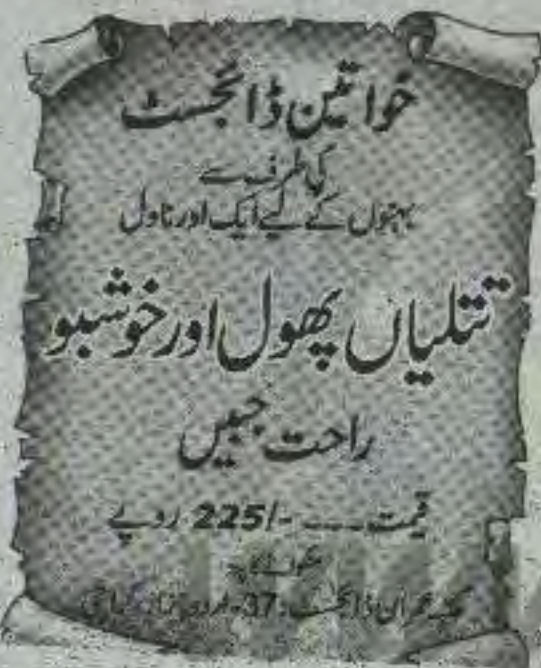 خواتین ڈائجسٹ
کی طرف سے
بہنوں کے لیے ایک اور ناول
تتلیاں پھول اور خوشبو
راحت جبیں
قیمت ---- -/225 روپے
منگوانے کا پتہ
مکتبہ عمران ڈائجسٹ: 37- اردو بازار، کراچی